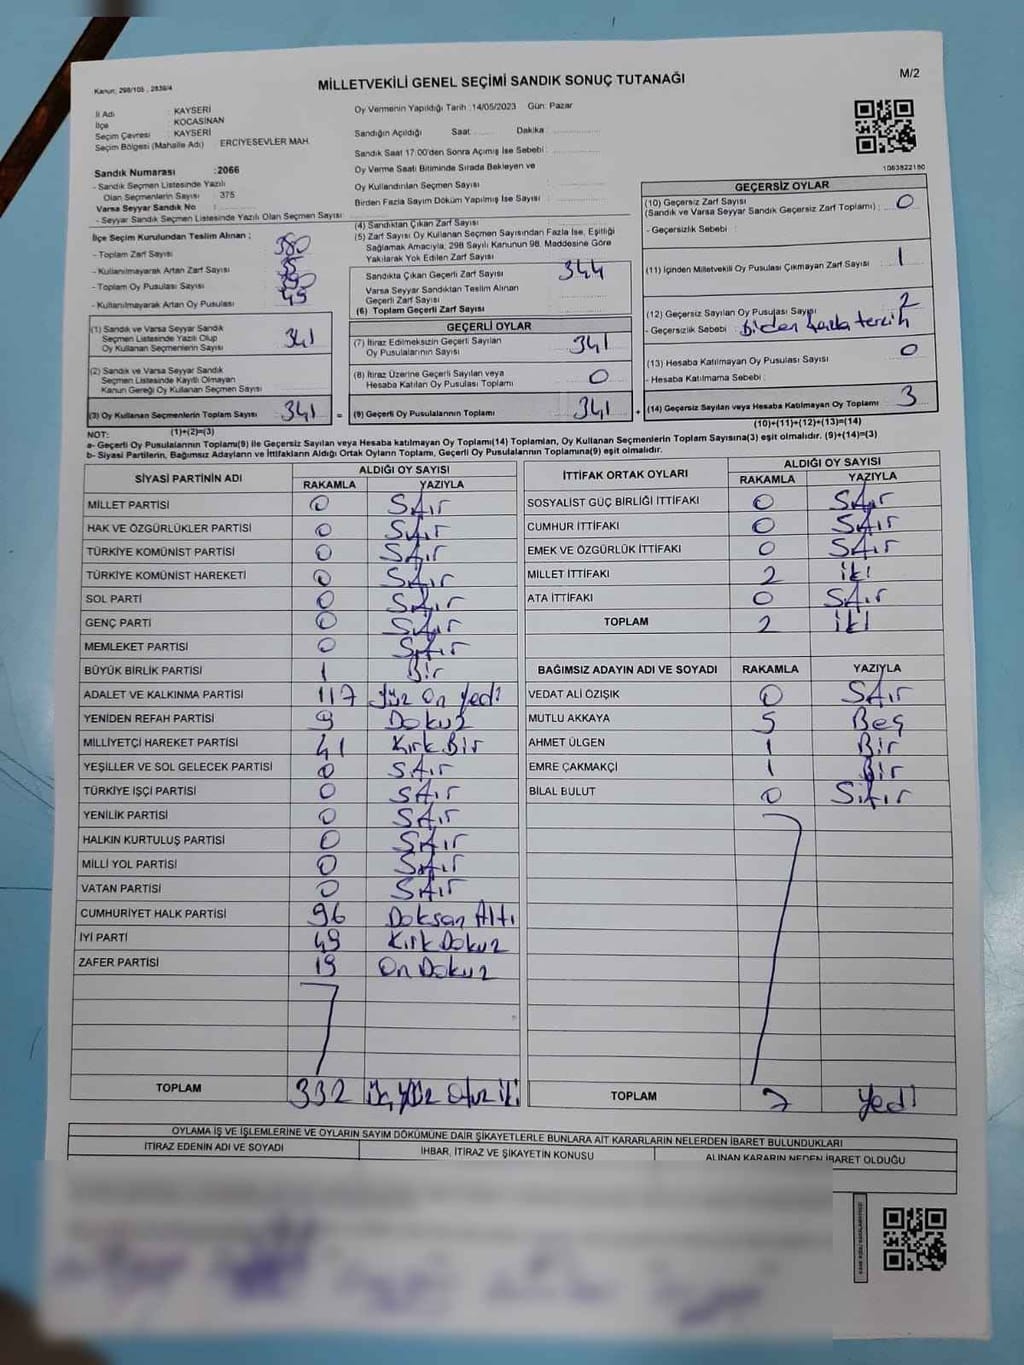 Kanun, 298/105 , 2839/4
MİLLETVEKİLİ GENEL SEÇİMİ SANDIK SONUÇ TUTANAĞI
M/2
İl Adı : KAYSERİ
İlçe : KOCASİNAN
Seçim Çevresi : KAYSERİ
Seçim Bölgesi (Mahalle Adı) ERCİYESEVLER MAH.
Sandık Numarası :2066
- Sandık Seçmen Listesinde Yazılı
Olan Seçmenlerin Sayısı : 375
Varsa Seyyar Sandık No
- Seyyar Sandık Seçmen Listesinde Yazılı Olan Seçmen Sayısı
Oy Vermenin Yapıldığı Tarih :14/05/2023 Gün: Pazar
Sandığın Açıldığı Saat Dakika
Sandık Saat 17:00'den Sonra Açımış İse Sebebi
Oy Verme Saati Bitiminde Sırada Bekleyen ve
Oy Kullandırılan Seçmen Sayısı
Birden Fazla Sayım Döküm Yapılmış İse Sayısı
1063822180
İlçe Seçim Kurulundan Teslim Alınan ;
- Toplam Zarf Sayısı 380
- Kullanılmayarak Artan Zarf Sayısı
- Toplam Oy Pusulası Sayısı
- Kullanılmayarak Artan Oy Pusulası 49
(1) Sandık ve Varsa Seyyar Sandık
Seçmen Listesinde Yazılı Olup
Oy Kullanan Seçmenlerin Sayısı 341
(2) Sandık ve Varsa Seyyar Sandık
Seçmen Listesinde Kayıtlı Olmayan
Kanun Gereği Oy Kullanan Seçmen Sayısı
(3) Oy Kullanan Seçmenlerin Toplam Sayısı 341
(1)+(2)=(3)
(4) Sandıktan Çıkan Zarf Sayısı
(5) Zarf Sayısı Oy Kullanan Seçmen Sayısından Fazla İse, Eşitliği
Sağlamak Amacıyla, 298 Sayılı Kanunun 98. Maddesine Göre
Yakılarak Yok Edilen Zarf Sayısı
Sandıkta Çıkan Geçerli Zarf Sayısı 344
Varsa Seyyar Sandıktan Teslim Alınan
Geçerli Zarf Sayısı
(6) Toplam Geçerli Zarf Sayısı
GEÇERLİ OYLAR
(7) İtiraz Edilmeksizin Geçerli Sayılan
Oy Pusulalarının Sayısı 341
(8) İtiraz Üzerine Geçerli Sayılan veya
Hesaba Katılan Oy Pusulası Toplamı 0
= (9) Geçerli Oy Pusulalarının Toplamı 341
GEÇERSİZ OYLAR
(10) Geçersiz Zarf Sayısı
(Sandık ve Varsa Seyyar Sandık Geçersiz Zarf Toplamı) : 0
- Geçersizlik Sebebi
(11) İçinden Milletvekili Oy Pusulası Çıkmayan Zarf Sayısı 1
(12) Geçersiz Sayılan Oy Pusulası Sayısı 2
- Geçersizlik Sebebi tercih
(13) Hesaba Katılmayan Oy Pusulası Sayısı 0
- Hesaba Katılmama Sebebi
+ (14) Geçersiz Sayılan veya Hesaba Katılmayan Oy Toplamı 3
(10)+(11)+(12)+(13)=(14)
NOT:
a- Geçerli Oy Pusulalarının Toplamı(9) ile Geçersiz Sayılan veya Hesaba katılmayan Oy Toplamı(14) Toplamları, Oy Kullanan Seçmenlerin Toplam Sayısına(3) eşit olmalıdır. (9)+(14)=(3)
b- Siyasi Partilerin, Bağımsız Adayların ve İttifakların Aldığı Ortak Oyların Toplamı, Geçerli Oy Pusulalarının Toplamına(9) eşit olmalıdır.
SİYASİ PARTİNİN ADI ALDIĞI OY SAYISI
RAKAMLA YAZIYLA
MİLLET PARTİSİ 0 Sıfır
HAK VE ÖZGÜRLÜKLER PARTİSİ 0 Sıfır
TÜRKİYE KOMÜNİST PARTİSİ 0 Sıfır
TÜRKİYE KOMÜNİST HAREKETİ 0 Sıfır
SOL PARTİ 0 Sıfır
GENÇ PARTİ 0 Sıfır
MEMLEKET PARTİSİ 0 Sıfır
BÜYÜK BİRLİK PARTİSİ 1 Bir
ADALET VE KALKINMA PARTİSİ 117 Yüz On Yedi
YENİDEN REFAH PARTİSİ 9 Dokuz
MİLLİYETÇİ HAREKET PARTİSİ 41 Kırk Bir
YEŞİLLER VE SOL GELECEK PARTİSİ 0 Sıfır
TÜRKİYE İŞÇİ PARTİSİ 0 Sıfır
YENİLİK PARTİSİ 0 Sıfır
HALKIN KURTULUŞ PARTİSİ 0 Sıfır
MİLLİ YOL PARTİSİ 0 Sıfır
VATAN PARTİSİ 0 Sıfır
CUMHURİYET HALK PARTİSİ 96 Doksan Altı
İYİ PARTİ 49 Kırk Dokuz
ZAFER PARTİSİ 19 On Dokuz
TOPLAM 332 Üç Yüz Otuz İki
İTTİFAK ORTAK OYLARI ALDIĞI OY SAYISI
RAKAMLA YAZIYLA
SOSYALİST GÜÇ BİRLİĞİ İTTİFAKI 0 Sıfır
CUMHUR İTTİFAKI 0 Sıfır
EMEK VE ÖZGÜRLÜK İTTİFAKI 0 Sıfır
MİLLET İTTİFAKI 2 iki
ATA İTTİFAKI 0 Sıfır
TOPLAM 2 iki
BAĞIMSIZ ADAYIN ADI VE SOYADI RAKAMLA YAZIYLA
VEDAT ALİ ÖZIŞIK 0 Sıfır
MUTLU AKKAYA 5 Beş
AHMET ÜLGEN 1 Bir
EMRE ÇAKMAKÇİ 1 Bir
BİLAL BULUT 0 Sıfır
TOPLAM 7 Yedi
OYLAMA İŞ VE İŞLEMLERİNE VE OYLARIN SAYIM DÖKÜMÜNE DAİR ŞİKAYETLERLE BUNLARA AİT KARARLARIN NELERDEN İBARET BULUNDUKLARI
İTİRAZ EDENİN ADI VE SOYADI İHBAR, İTİRAZ VE ŞİKAYETİN KONUSU ALINAN KARARIN NEDEN İBARET OLDUĞU